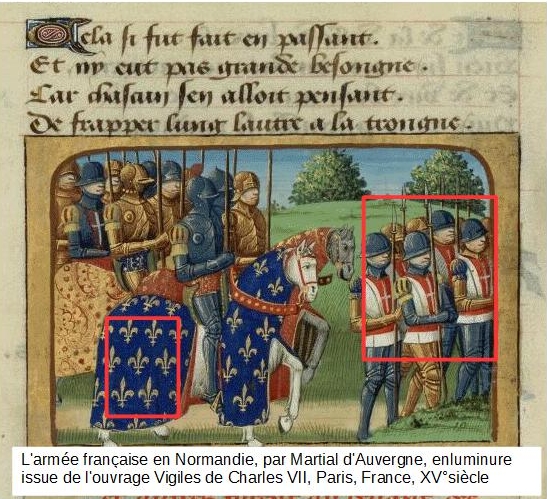 Cela si fut fait en passant.
Et ny eut pas grande besongne.
Car chascun sen alloit pensant.
De frapper lung lautre a la trongne.
L'armée française en Normandie, par Martial d'Auvergne, enluminure
issue de l'ouvrage Vigiles de Charles VII, Paris, France, XV°siècle